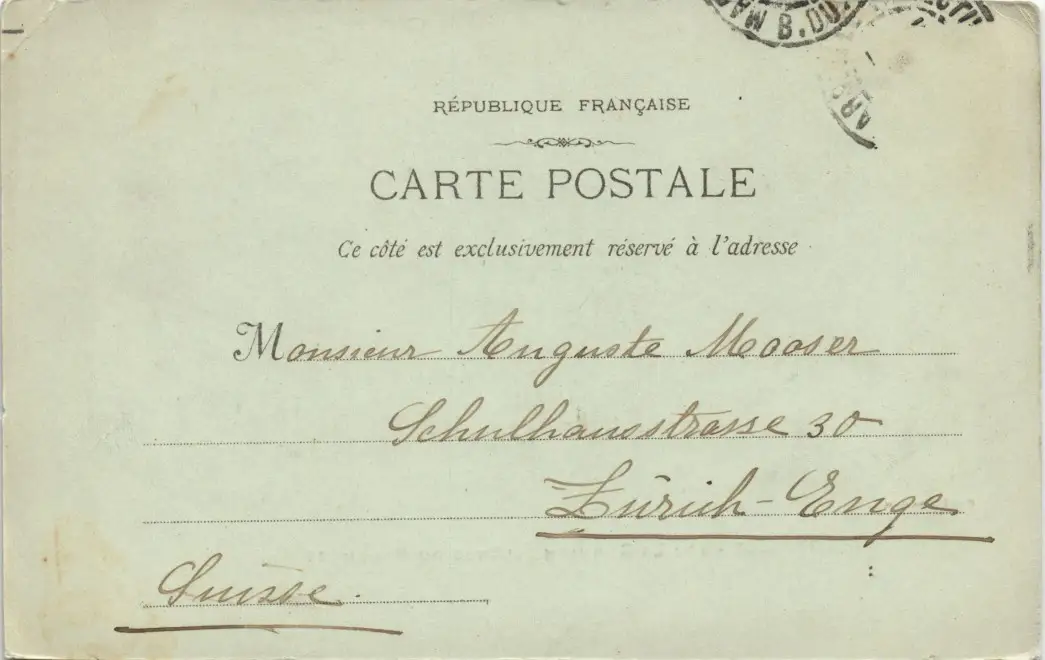 B. DU
RÉPUBLIQUE FRANÇAISE
CARTE POSTALE
Ce côté est exclusivement réservé à l'adresse
Monsieur Auguste Mooser
Schulhausstrasse 30
Zürich-Enge
Suisse.